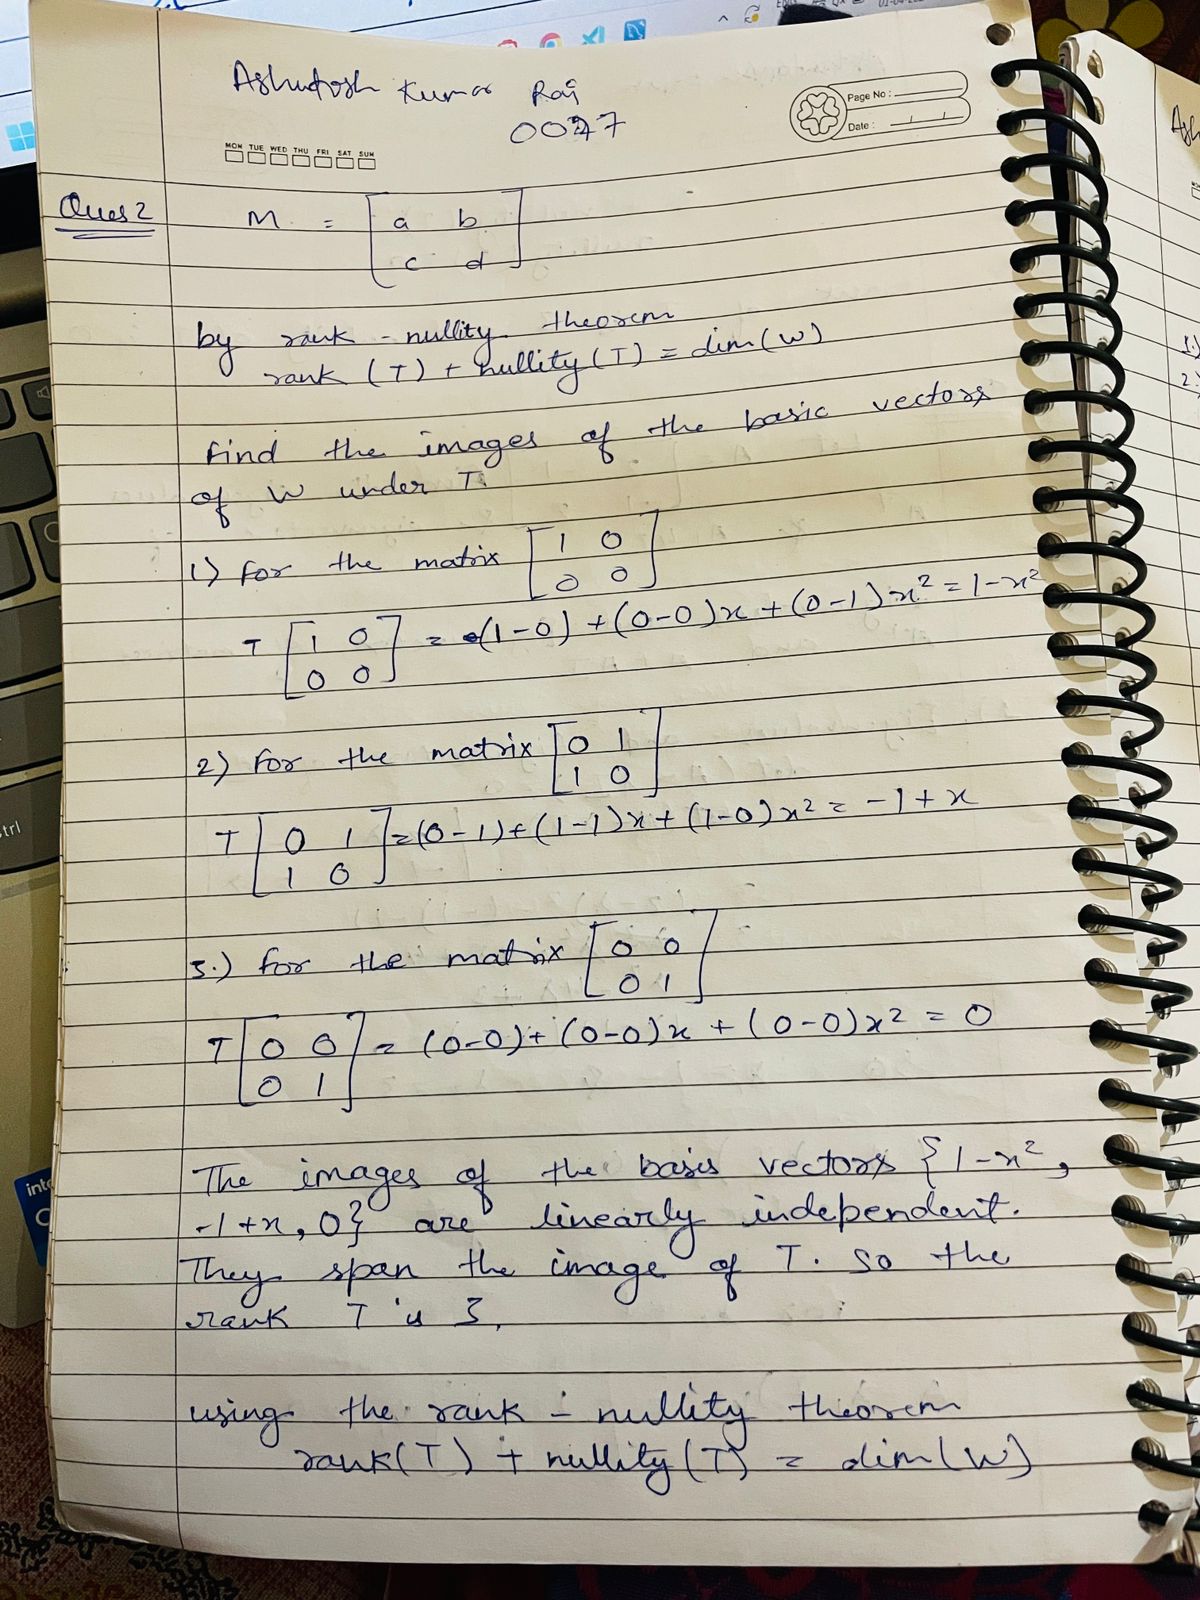 Ashutosh Kumar Rai
0027
Page No :
Date :
MON TUE WED THU FRI SAT SUN
Ques 2
M = [ a b
c d ]
by rank - nullity theorem
rank (T) + nullity (T) = dim (W)
find the images of the basic vectors
of W under T.
1) for the matrix [ 1 0
0 0 ]
T [ 1 0
0 0 ] = (1-0) + (0-0)x + (0-1)x² = 1-x²
2) for the matrix [ 0 1
1 0 ]
T [ 0 1
1 0 ] = (0-1) + (1-1)x + (1-0)x² = -1+x
3.) for the matrix [ 0 0
0 1 ]
T [ 0 0
0 1 ] = (0-0) + (0-0)x + (0-0)x² = 0
The images of the basis vectors {1-x²,
-1+x, 0} are linearly independent.
They span the image of T. So the
rank T is 3,
using the rank - nullity theorem
rank(T) + nullity (T) = dim (W)